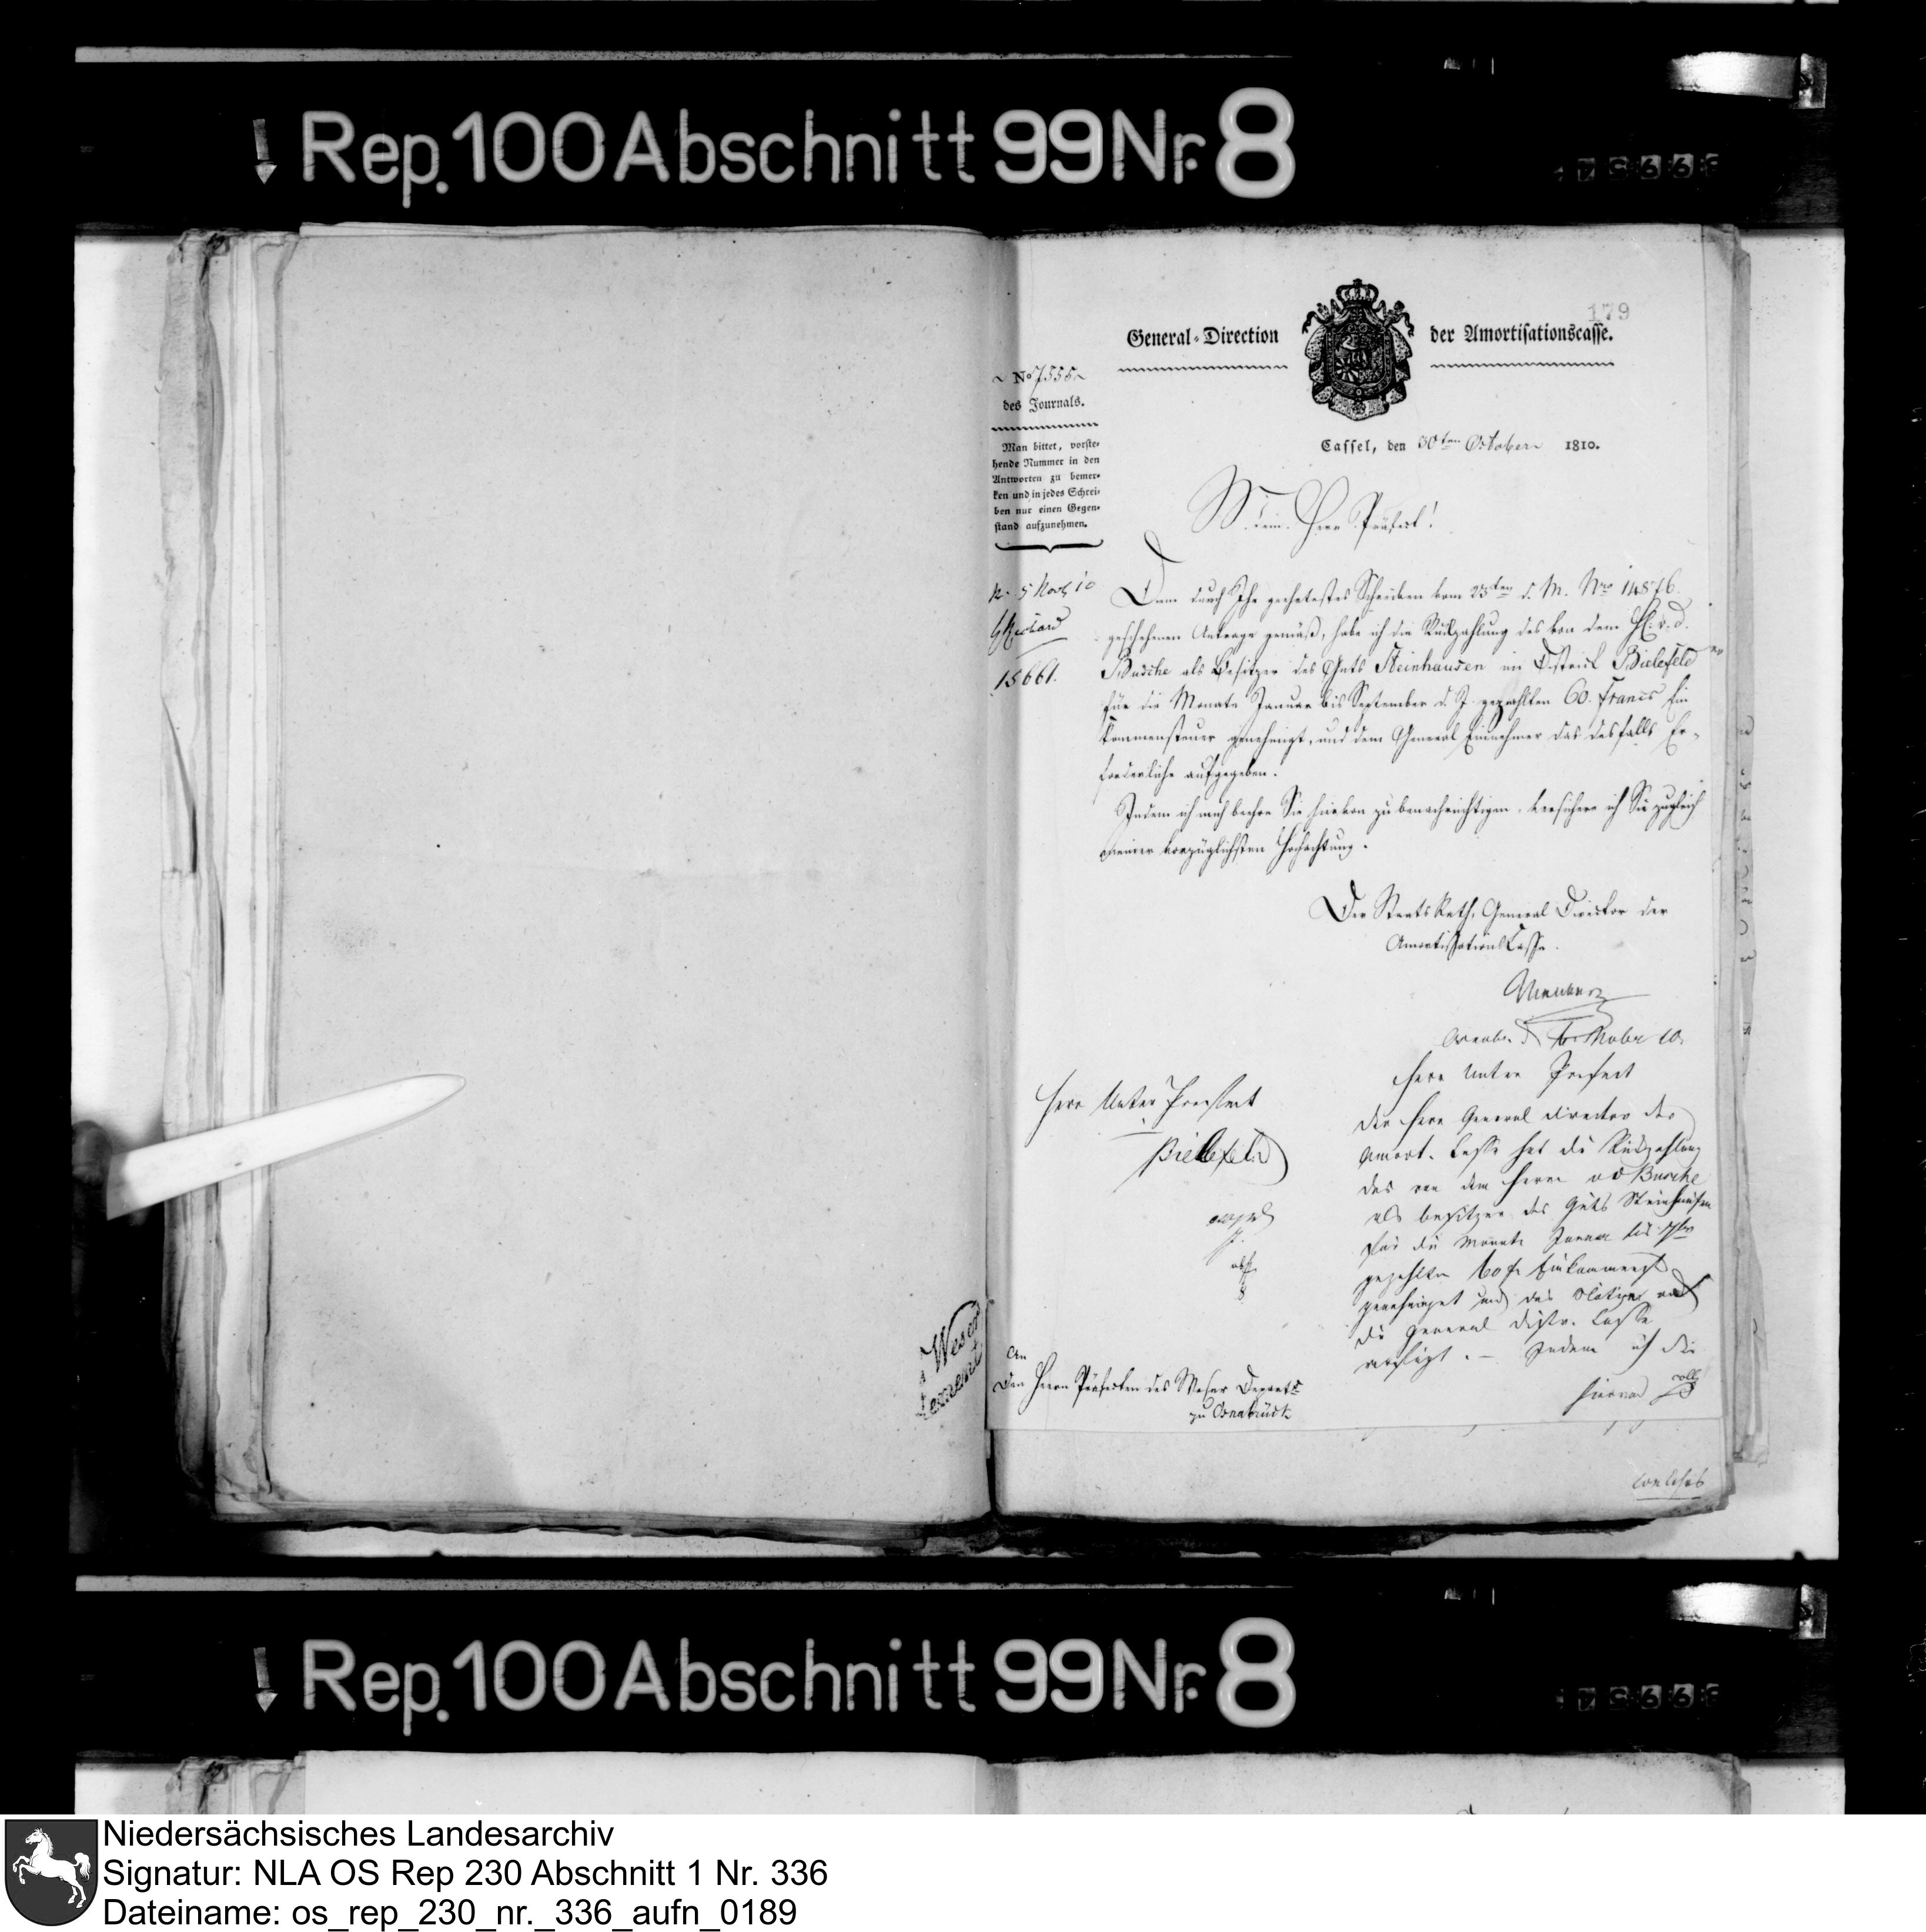 Rep. 100 Abschnitt 99 Nr. 8
179
General-Direction der Amortisationscasse.
No 7555
des Journals.
Man bittet, vorste-
hende Nummer in den
Antworten zu bemer-
ken und in jedes Schrei-
ben nur einen Gegen-
stand aufzunehmen.
Cassel, den 30ten October 1810.
Mein Herr Präfect!
15661.
Dem durch Ihr geehrtestes Schreiben vom 25ten d. M. Nro 14876.
geschehenen Antrage gemäß, habe ich die Rückzahlung des von dem H. v. d.
Busche als Besitzer des Guts Steinhausen im District Bielefeld
für die Monate Januar bis September d. J. gezahlten 60. Francs Ein
kommensteuer genehmigt, und dem General Einnehmer das desfalls Er-
forderliche aufgegeben.
Indem ich mich beehre Sie hievon zu benachrichtigen, versichere ich Sie zugleich
meiner vorzüglichsten Hochachtung.
Der Staats Rath, General Director der
Amortisations Casse.
Herr Unter Praefect
Bielefeld
Herr Unter Prefect
der Herr General Director der
Amort. Casse hat die Rückzahlung
des von dem Herrn v d Busche
als Besitzer des Guts Steinhausen
für die Monate Januar bis 7br
gezahlten 60 fr
genehmiget und das
die General Distr. Casse
verfügt. — Indem ich Sie
hiervon
An
Den Herrn Präfecten des Weser Depart
zu Osnabrück
Weser
welches
Rep. 100 Abschnitt 99 Nr. 8
Niedersächsisches Landesarchiv
Signatur: NLA OS Rep 230 Abschnitt 1 Nr. 336
Dateiname: os_rep_230_nr._336_aufn_0189